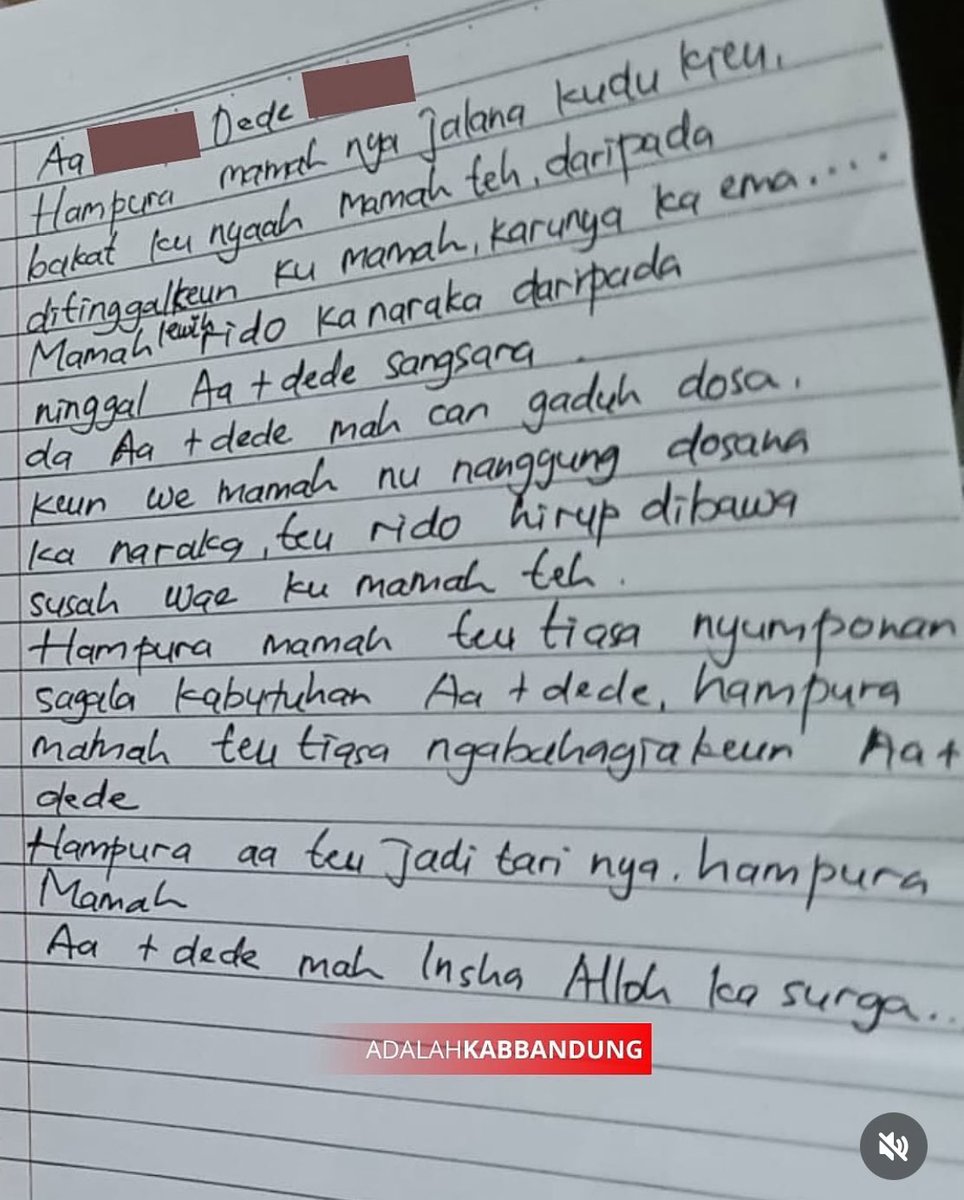 Aa Dede
Hampura mamah nya jalana kudu kieu,
bakat ku nyaah mamah teh, daripada
ditinggalkeun ku mamah, karunya ka ema....
Mamah lewih rido ka naraka daripada
ninggal Aa + dede sangsara.
da Aa + dede mah can gaduh dosa,
keun we mamah nu nanggung dosana
ka naraka, teu rido hirup dibawa
susah wae ku mamah teh.
Hampura mamah teu tiasa nyumponan
sagala kabutuhan Aa + dede, hampura
mamah teu tiasa ngabahagiakeun Aa +
dede
Hampura aa teu jadi tari nya. hampura
Mamah
Aa + dede mah Insha Alloh ka surga..
ADALAHKABBANDUNG